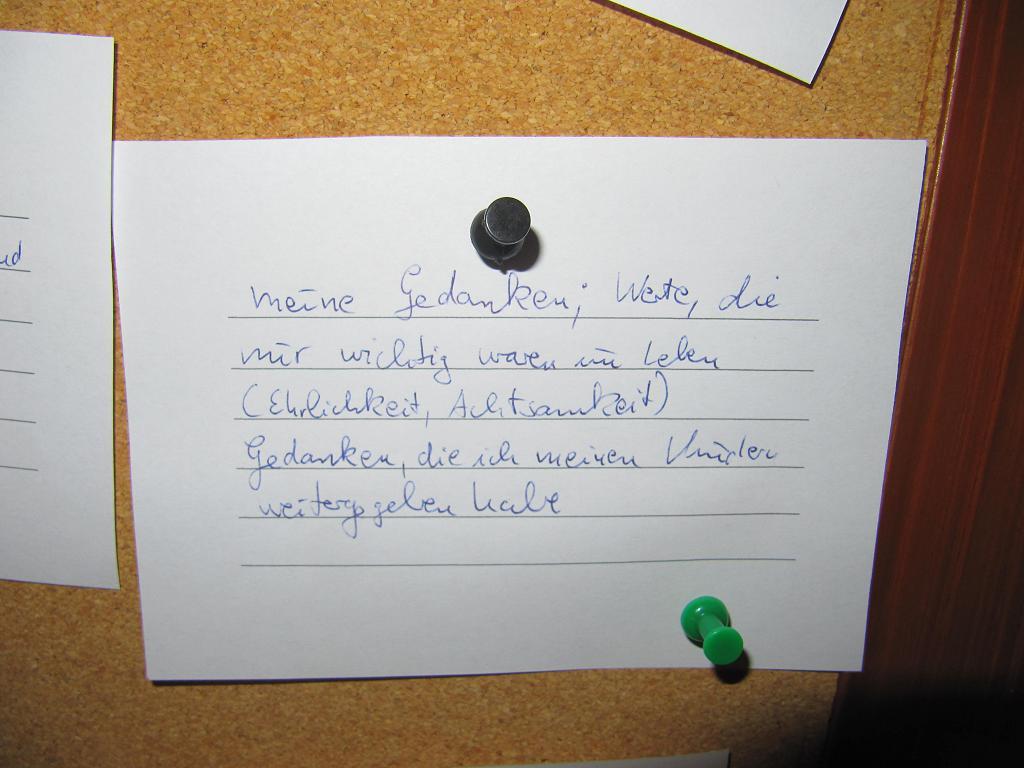 ud
meine Gedanken; Werte, die
mir wichtig waren im Leben
(Ehrlichkeit, Achtsamkeit)
Gedanken, die ich meinen Kindern
weitergegeben habe